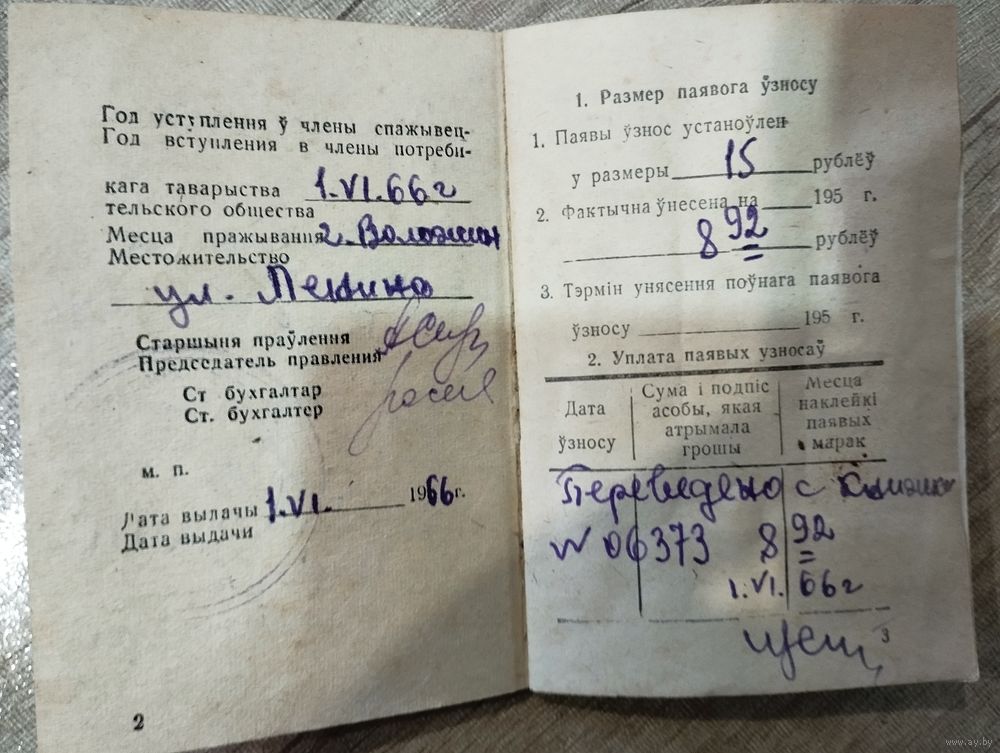 Год уступлення ў члены спажывец-
Год вступления в члены потреби-
кага таварыства 1.VI.66 г
тельского общества
Месца пражывання г. Воложин
Местожительство
ул. Ленина
Старшыня праўлення
Председатель правления
Ст бухгалтар
Ст. бухгалтер
м. п.
Дата выдачы 1.VI. 1966 г.
Дата выдачи
2
1. Размер паявога ўзносу
1. Паявы ўзнос устаноўлен
у размеры 15 рублёў
2. Фактычна ўнесена на 195 г.
8 92 рублёў
3. Тэрмін унясення поўнага паявога
ўзносу 195 г.
2. Уплата паявых узносаў
Дата ўзносу
Сума і подпіс асобы, якая атрымала грошы
Месца наклейкі паявых марак
Переведено с книжки
№ 06373 8 92
1.VI. 66 г
3
www.ay.by